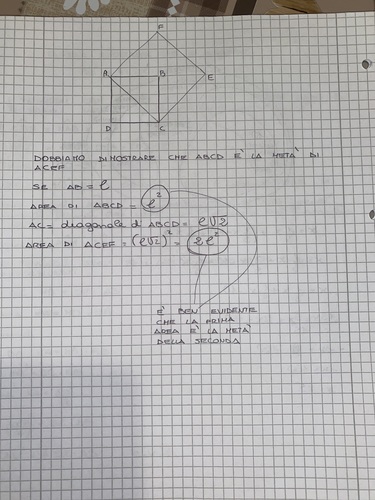 F
A B
E
D C
DOBBIAMO DIMOSTRARE CHE ABCD È LA METÀ DI
ACEF
SE AB = l
AREA DI ABCD = l²
AC = diagonale d ABCD = l√2
AREA DI ACEF = (l√2)² = 2l²
È BEN EVIDENTE
CHE LA PRIMA
AREA È LA METÀ
DELLA SECONDA